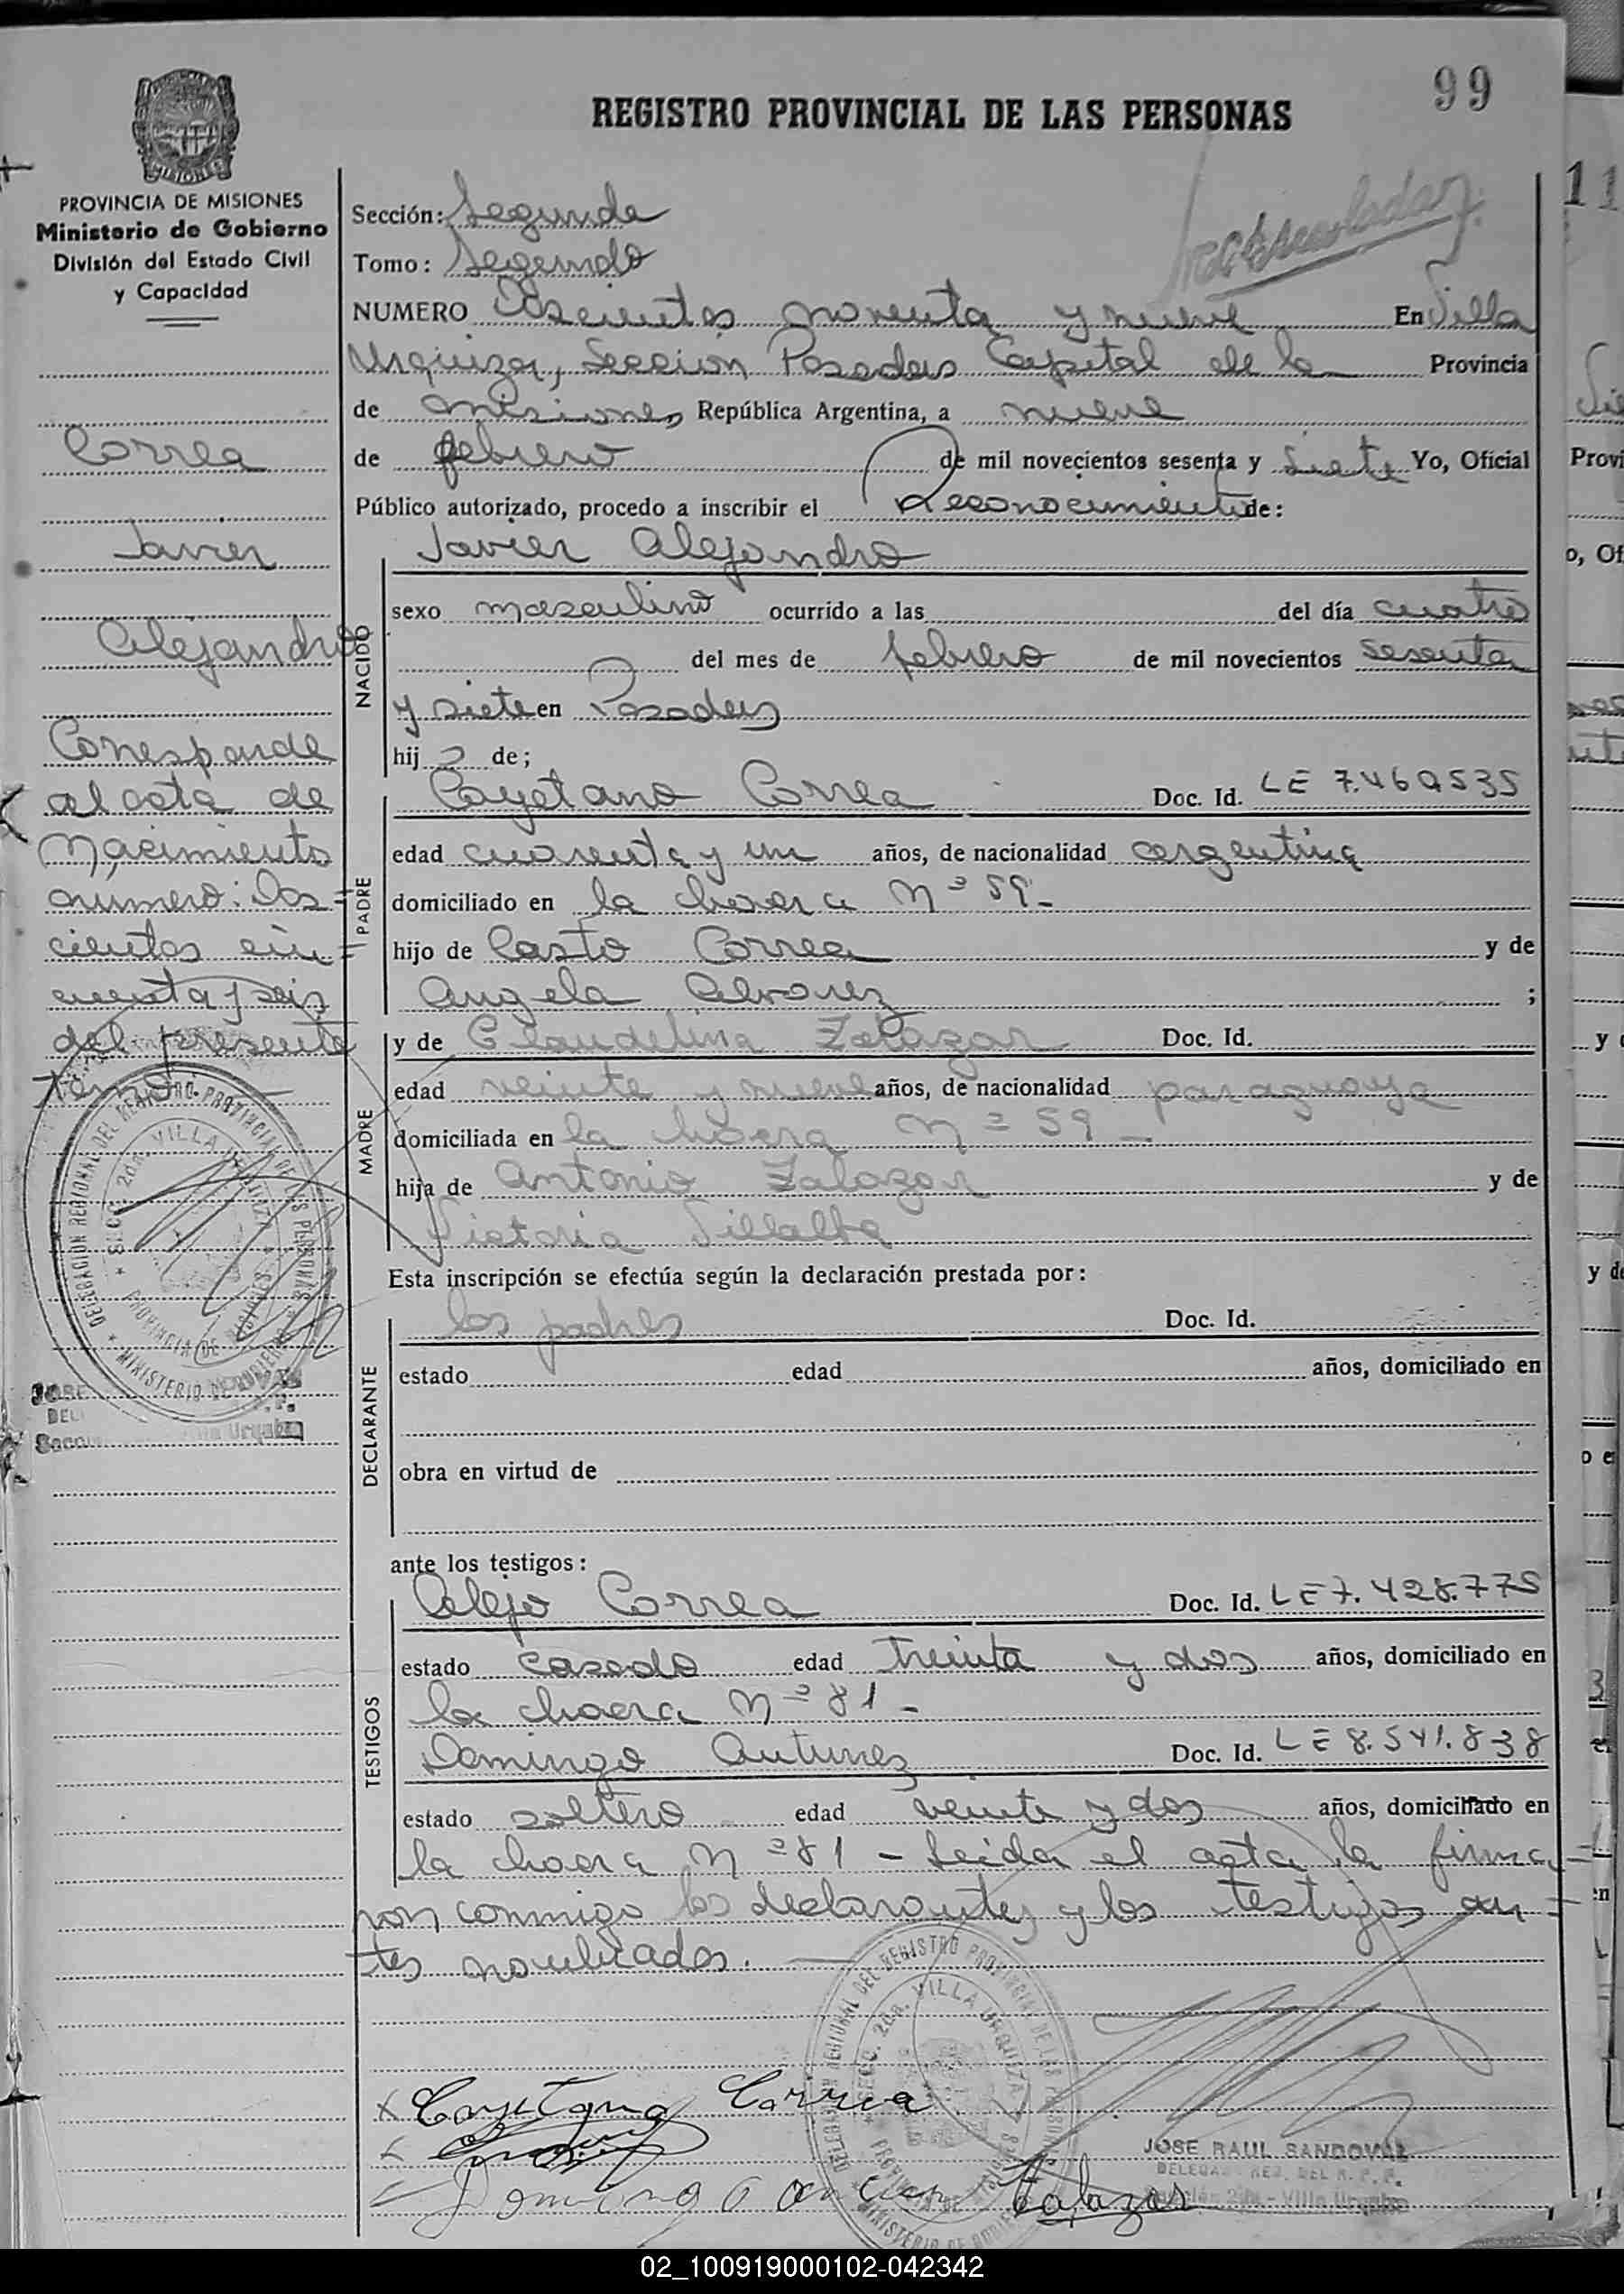 99
REGISTRO PROVINCIAL DE LAS PERSONAS
MISIONES
PROVINCIA DE MISIONES
Ministerio de Gobierno
División del Estado Civil
y Capacidad
Correa
Javier
Alejandro
Corresponde
al acta de
Nacimiento
numero: Dos=
cientos cin=
cuenta y seis
del presente
tomo.
DELEGACION REGIONAL DEL REGISTRO PROVINCIAL DE LAS PERSONAS
SECC. 2da. VILLA URQUIZA
PROVINCIA DE MISIONES
MINISTERIO DE GOBIERNO
Sección: Segunda
Tomo: Segundo
NUMERO Doscientos noventa y nueve En Villa
Urquiza, Sección Posadas Capital de la Provincia
de Misiones, República Argentina, a nueve
de febrero de mil novecientos sesenta y siete Yo, Oficial
Público autorizado, procedo a inscribir el Reconocimiento de:
NACIDO
Javier Alejandro
sexo masculino ocurrido a las del día cuatro
del mes de febrero de mil novecientos sesenta
y siete en Posadas
hijo de;
PADRE
Cayetano Correa Doc. Id. LE 7.469535
edad cuarenta y un años, de nacionalidad argentina
domiciliado en la chacra Nº 59-
hijo de Casto Correa y de
Angela Alvarez ;
MADRE
y de Claudelina Zalazar Doc. Id.
edad veinte y nueve años, de nacionalidad paraguaya
domiciliada en la chacra Nº 59-
hija de Antonio Zalazar y de
Victoria Villalba
Esta inscripción se efectúa según la declaración prestada por:
DECLARANTE
los padres Doc. Id.
estado edad años, domiciliado en
obra en virtud de
ante los testigos:
TESTIGOS
Alejo Correa Doc. Id. LE 7.428.775
estado casado edad treinta y dos años, domiciliado en
la chacra Nº 81-
Domingo Antunez Doc. Id. LE 8.541.838
estado soltero edad veinte y dos años, domiciliado en
la chacra Nº 81 - Leida el acta la firma=
ron conmigo los declarantes y los testigos an=
tes nombrados.
DELEGACION REGIONAL DEL REGISTRO PROVINCIAL DE LAS PERSONAS
SECC. 2da. VILLA URQUIZA
MINISTERIO DE GOBIERNO
Cayetano Correa
Zalazar
JOSE RAUL SANDOVAL
DELEGADO REG. DEL R. P. P.
Sección 2da - Villa Urquiza
02_100919000102-042342